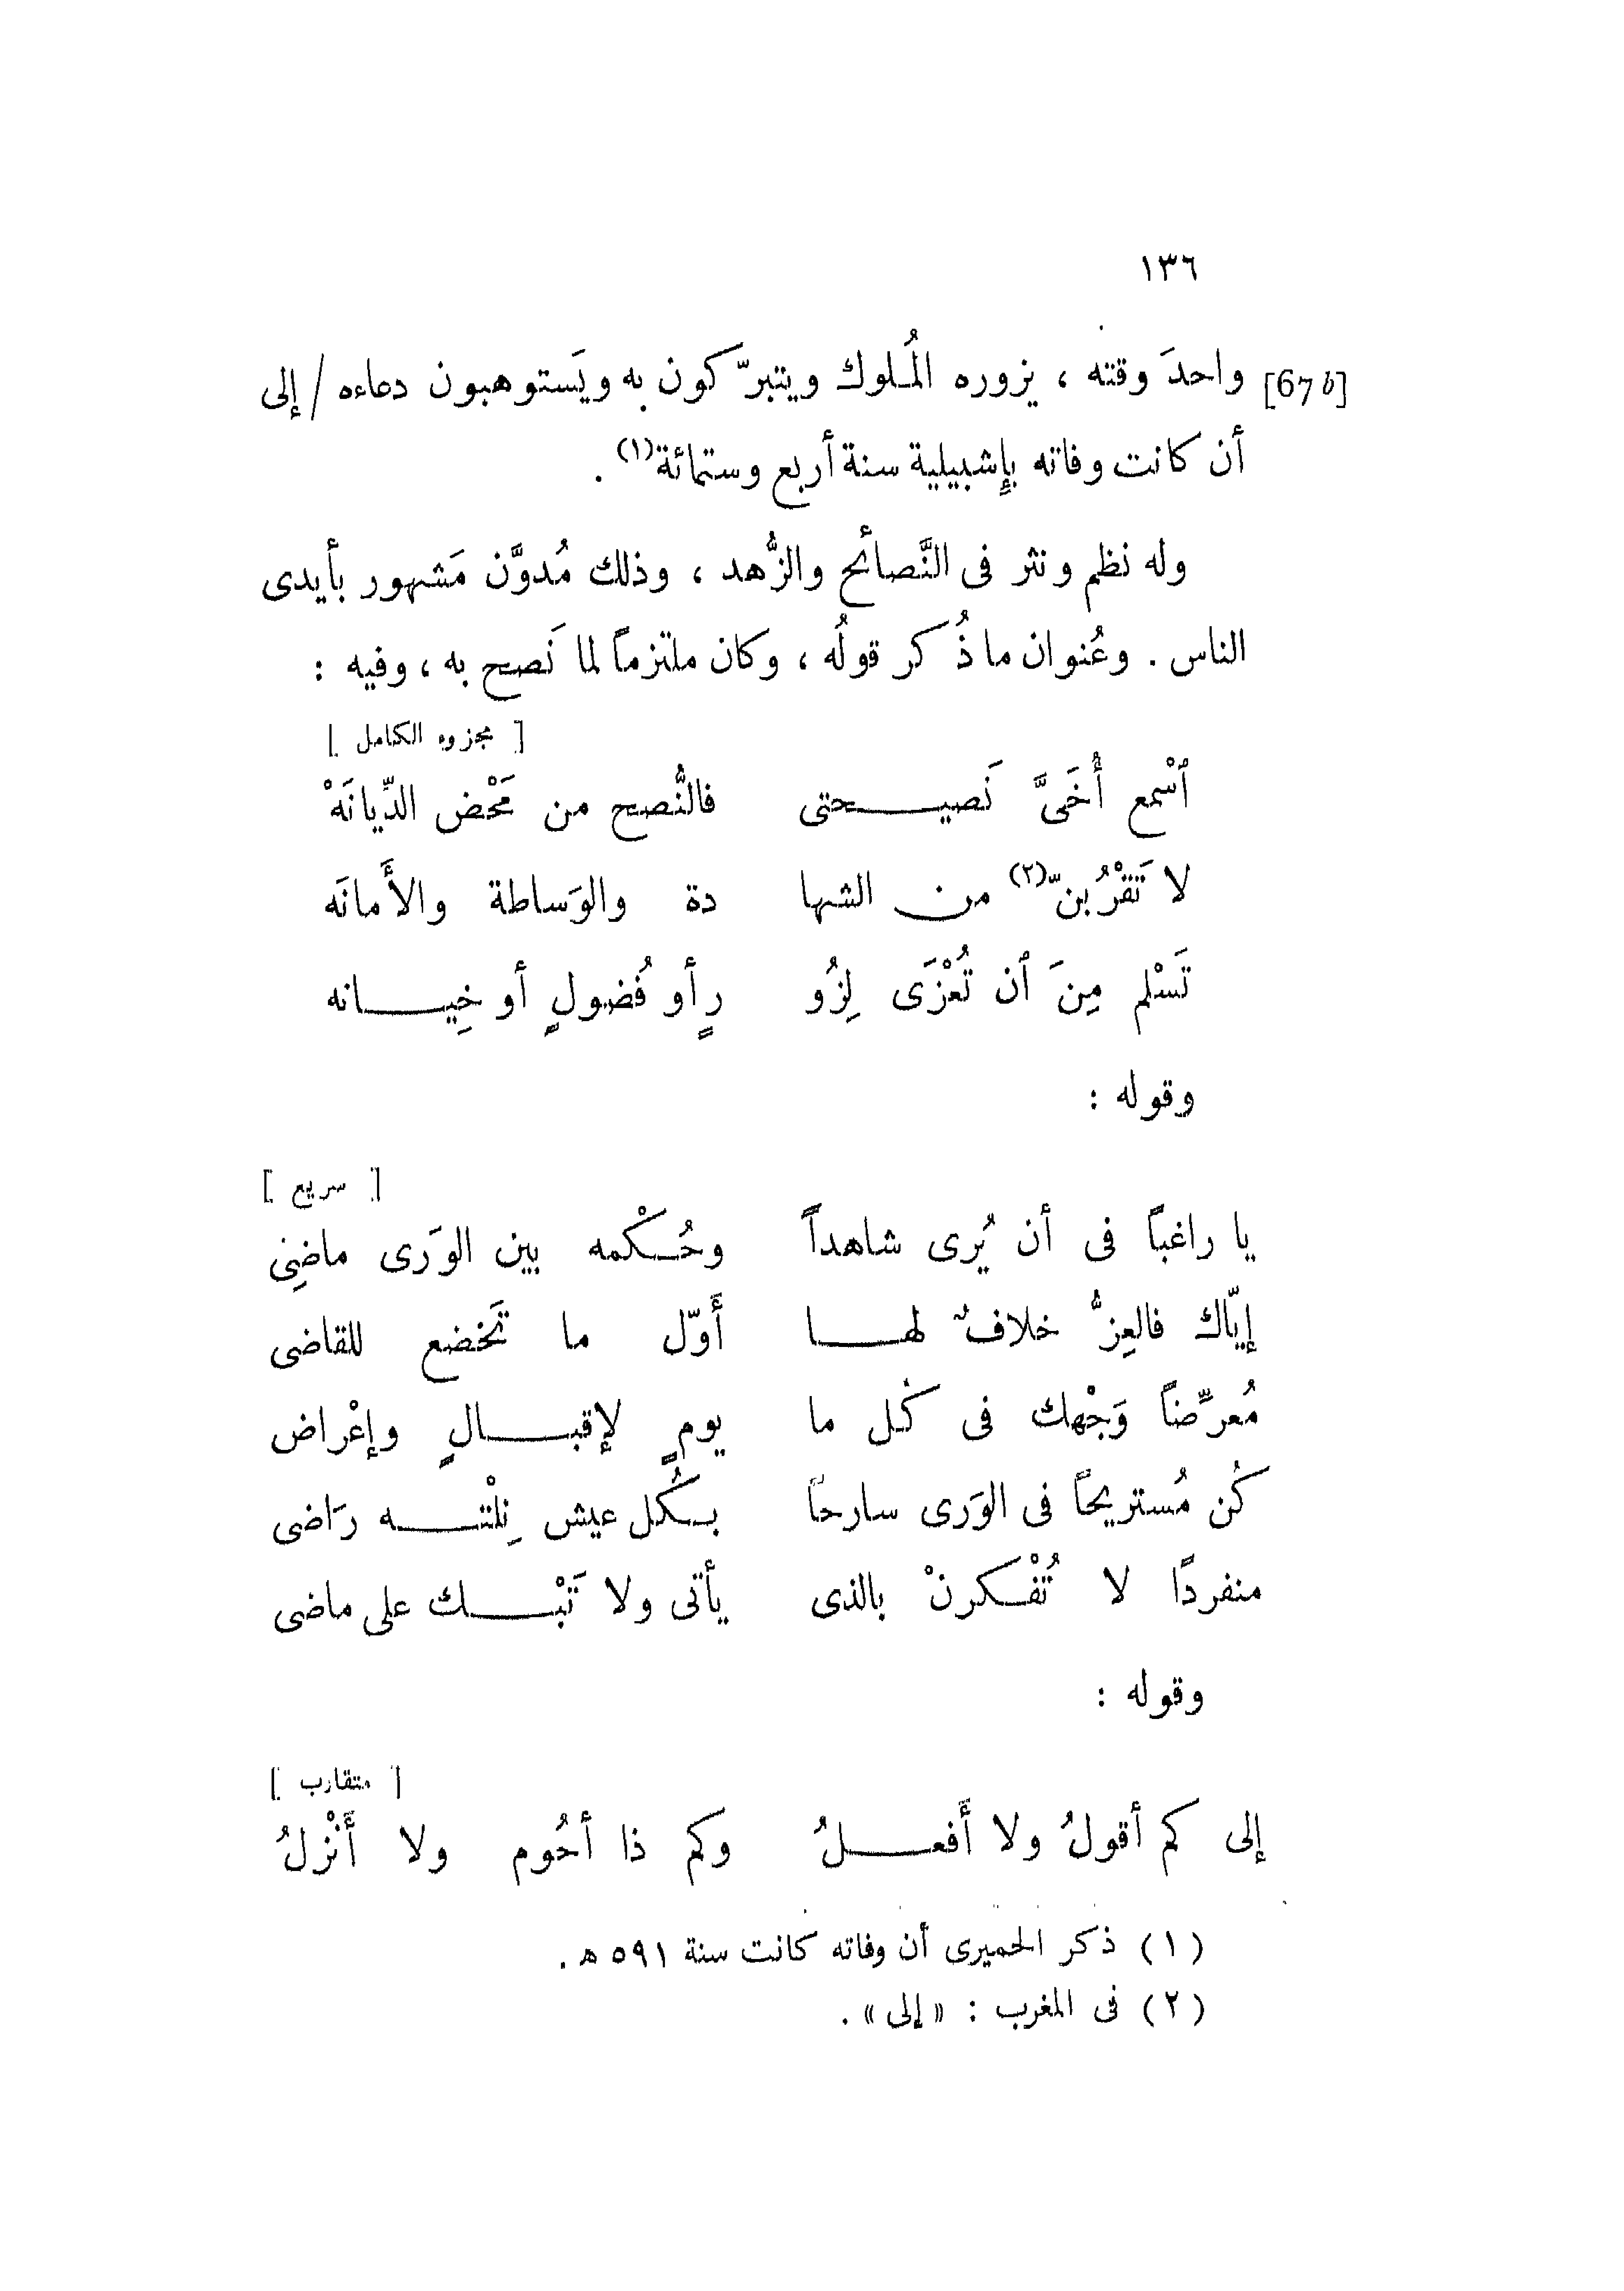 ١٣٦
[67 b] واحدَ وقته ، يزوره المُلوك ويتبرّكون به ويَستوهبون دعاءه / إلى
أن كانت وفاته بإِشبيلية سنة أربع وستمائة(١) .
وله نظم ونثر فى النَّصائح والزُّهد ، وذلك مُدوَّن مَشهور بأيدى
الناس . وعُنوان ما ذُكر قولُه ، وكان ملتزماً لما نَصح به ، وفيه :
[ مجزوء الكامل ]
ٱسْمع أُخَىَّ نَصيحتى فالنُّصح من مَحْض الدِّيانَهْ
لا تَقْرُبنّ(٢) من الشهادة والوَساطة والأَمانَه
تَسْلم مِنَ ٱن تُعْزَى لِزُورٍ أو فُضولٍ أو خِيانه
وقوله :
[ سريع ]
يا راغباً فى أن يُرى شاهداً وحُكْمه بين الوَرى ماضِى
إيّاك فالعِزُّ خلافٌ لها أَوّل ما تَخضع للقاضى
مُعرِّضاً وَجْهك فى كل ما يومٍ لإقبالٍ وإعْراض
كُن مُستريحاً فى الوَرى سارحاً بكُل عيش نِلْته رَاضى
منفردًا لا تُفْكرنْ بالذى يأتى ولا تَبْك على ماضى
وقوله :
[ متقارب ]
إلى كم أقولُ ولا أَفعلُ وكم ذا أحُوم ولا أَنْزلُ
(١) ذكر الحميرى أن وفاته كانت سنة ٥٩١ ه .
(٢) فى المغرب : « إلى » .